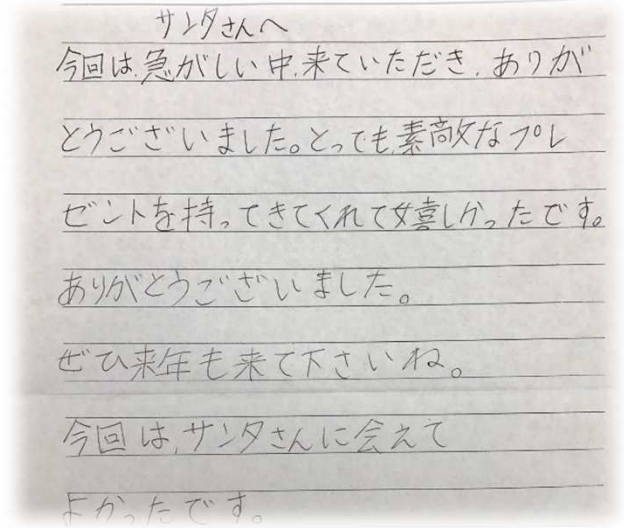 サンタさんへ
今回は、急がしい中、来ていただき、ありが
とうございました。とっても、素敵なプレ
ゼントを持ってきてくれて嬉しかったです。
ありがとうございました。
ぜひ来年も来て下さいね。
今回は、サンタさんに会えて
よかったです。